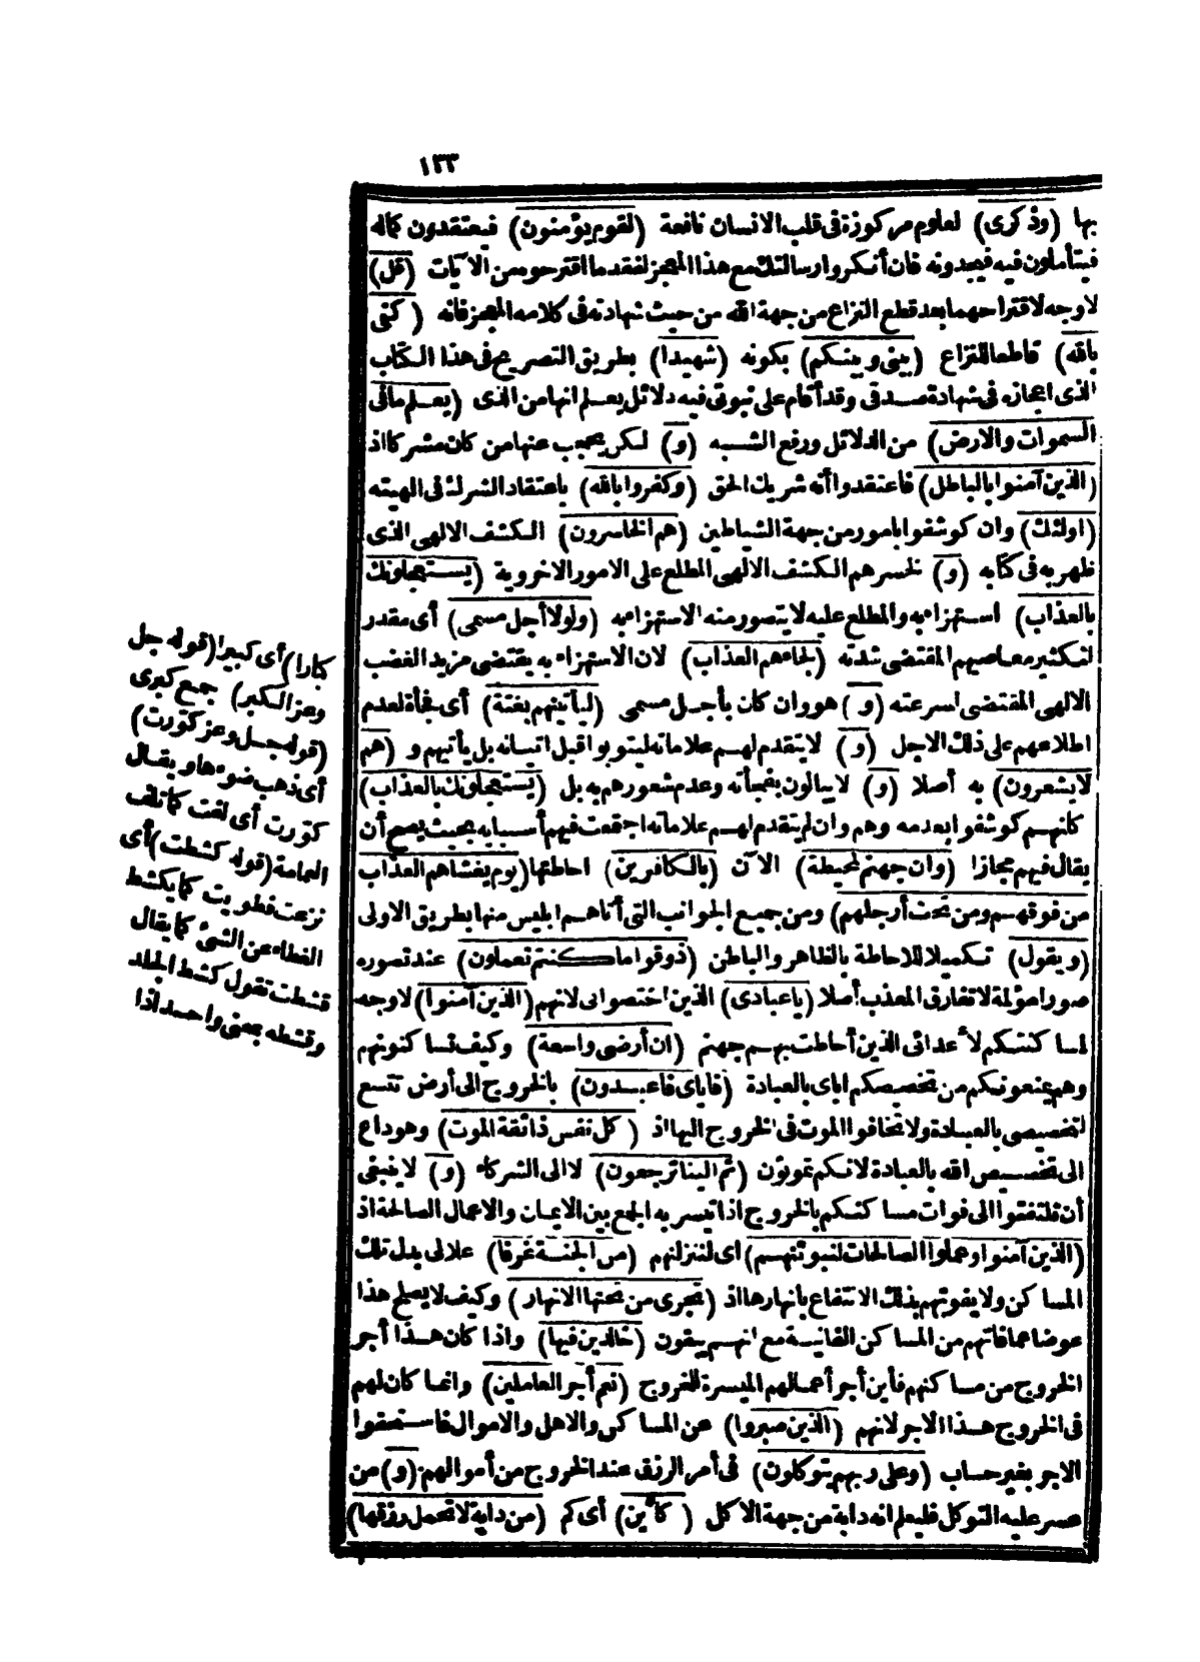 ١٣٣
بها (وذكرى) لعلوم مركوزة فى قلب الانسان نافعة (لقوم يؤمنون) فيعتقدون كماله
فيتأملون فيه فيجدونه فان أنكروا رسالتك مع هذا المعجز لفقد ما اقترحوه من الآيات (قل)
لا وجه لاقتراحهما بعد قطع النزاع من جهة الله من حيث شهادته فى كلامه المعجز فانه (كفى
بالله) قاطعا للنزاع (بينى وبينكم) بكونه (شهيدا) بطريق التصريح فى هذا الكتاب
الذى اعجازه فى شهادة صدقى وقد أقام على نبوتى فيه دلائل يعلم انها من الذى (يعلم ما فى
السموات والارض) من الدلائل ورفع الشبه (و) لكن يحجب عنها من كان مشركا اذ
(الذين آمنوا بالباطل) فاعتقدوا أنه شريك الحق (وكفروا بالله) باعتقاد الشرك فى الهيته
(اولئك) وان كوشفوا بامور من جهة الشياطين (هم الخاسرون) الكشف الالهى الذى
ظهر به فى كتابه (و) لخسرهم الكشف الالهى المطلع على الامور الاخروية (يستعجلونك
بالعذاب) استهزاء به والمطلع عليه لا يتصور منه الاستهزاء به (ولولا أجل مسمى) أى مقدر
لتكثير معاصيهم المقتضى شدته (لجاءهم العذاب) لان الاستهزاء به يقتضى مزيد الغضب
الالهى المقتضى لسرعته (و) هو وان كان بأجل مسمى (ليأتينهم بغتة) أى فجأة لعدم
اطلاعهم على ذلك الاجل (و) لا يتقدم لهم علاماته ليتوبوا قبل اتيانه بل يأتيهم و (هم
لا يشعرون) به أصلا (و) لا يبالون بفجأته وعدم شعورهم به بل (يستعجلونك بالعذاب)
كانهم كوشفوا بعدمه وهم وان لم يتقدم لهم علاماته اجتمعت فيهم أسبابه بحيث يصح أن
يقال فيهم مجازا (وان جهنم لمحيطة) الآن (بالكافرين) احاطتها (يوم يغشاهم العذاب
من فوقهم ومن تحت أرجلهم) ومن جميع الجوانب التى أتاهم ابليس منها بطريق الاولى
(ويقول) تكميلا للاحاطة بالظاهر والباطن (ذوقوا ما كنتم تعملون) عند تصوره
صورا مؤلمة لا تفارق المعذب أصلا (يا عبادى) الذين اختصوا لى لانهم (الذين آمنوا) لا وجه
لمساكنتكم لأعدائى الذين أحاطت بهم جهنم (ان أرضى واسعة) وكيف تساكنونهم
وهم يمنعونكم من تخصيصكم اياى بالعبادة (فاياى فاعبدون) بالخروج الى أرض تتسع
لتخصيصى بالعبادة ولا تخافوا الموت فى الخروج اليها اذ (كل نفس ذائقة الموت) وهو داع
الى تخصيص الله بالعبادة لانكم تموتون (ثم الينا ترجعون) لا الى الشركاء (و) لا ينبغى
أن تلتفتوا الى فوات مساكنكم بالخروج اذا تيسر به الجمع بين الايمان والاعمال الصالحة اذ
(الذين آمنوا وعملوا الصالحات لنبوئنهم) أى لننزلنهم (من الجنة غرفا) علالى بدل تلك
المساكن ولا يفوتهم بذلك الانتفاع بانهارها اذ (تجرى من تحتها الانهار) وكيف لا يصلح هذا
عوضا عما فاتهم من المساكن الفانية مع انهم يبقون (خالدين فيها) واذا كان هذا أجر
الخروج من مساكنهم فأين أجر أعمالهم الميسرة للخروج (نعم أجر العاملين) وانما كان لهم
فى الخروج هذا الاجر لانهم (الذين صبروا) عن المساكن والاهل والاموال فاستحقوا
الاجر بغير حساب (وعلى ربهم يتوكلون) فى أمر الرزق عند الخروج من أموالهم (و) من
عسر عليه التوكل فليعلم انه دابة من جهة الاكل (كأين) أى كم (من دابة لا تحمل رزقها)
كبارا) أى كبيرا (قوله جل
وعز الكبر) جمع كبرى
(قوله جل وعز كوّرت)
أى ذهب ضوءها ويقال
كوّرت أى لفت كما تلف
العمامة (قوله كشطت) أى
نزعت فطويت كما يكشط
الغطاء عن الشئ كما يقال
قشطت تقول كشط الجلد
وقشطه بمعنى واحد اذا